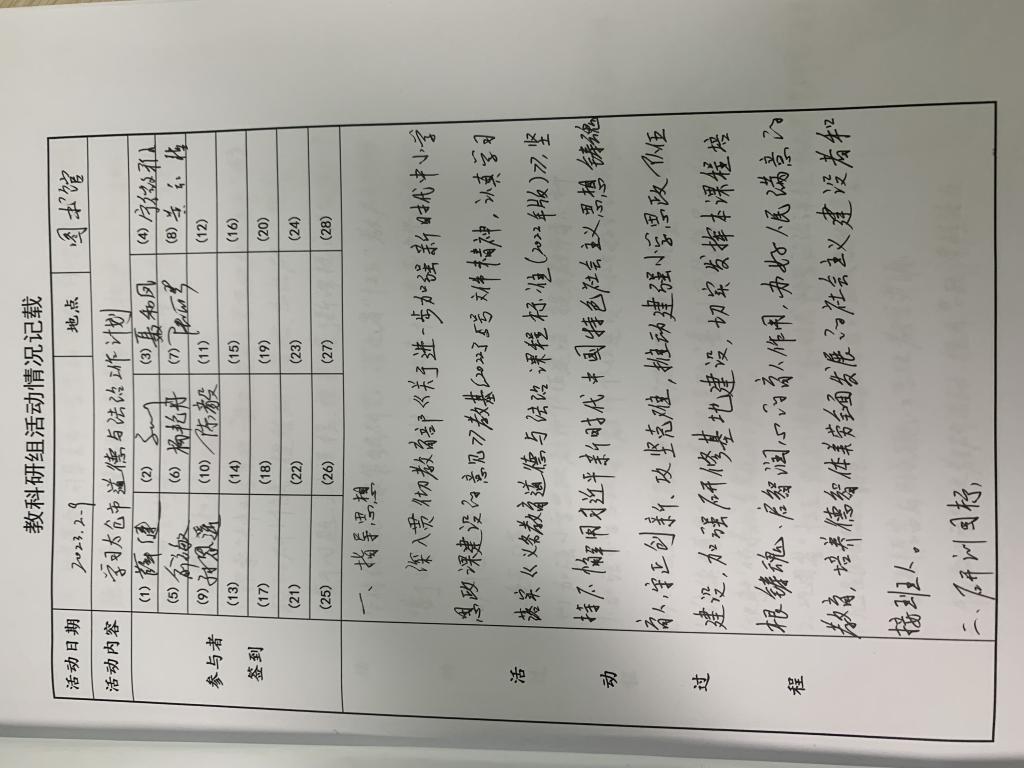 教科研组活动情况记载
活动日期 2023.2.9 地点 图书馆
活动内容 学习太仓市道德与法治工作计划
参与者签到
(1) (2) (3) (4)
(5) (6) (7) (8)
(9) (10) 陈毅 (11) (12)
(13) (14) (15) (16)
(17) (18) (19) (20)
(21) (22) (23) (24)
(25) (26) (27) (28)
活动过程
一、指导思想
深入贯彻教育部《关于进一步加强新时代中小学
思政课建设的意见》教基(2022)5号文件精神，认真学习
落实《义务教育道德与法治课程标准(2022年版)》，坚
持不懈用习近平新时代中国特色社会主义思想铸魂
育人，守正创新、攻坚克难，推动建强小学思政
建设，加强研修基地建设，切实发挥本课程培
根铸魂、启智润心的育人作用，办好人民满意的
教育，培养德智体美劳全面发展的社会主义建设者和
接班人。
二、研训目标：